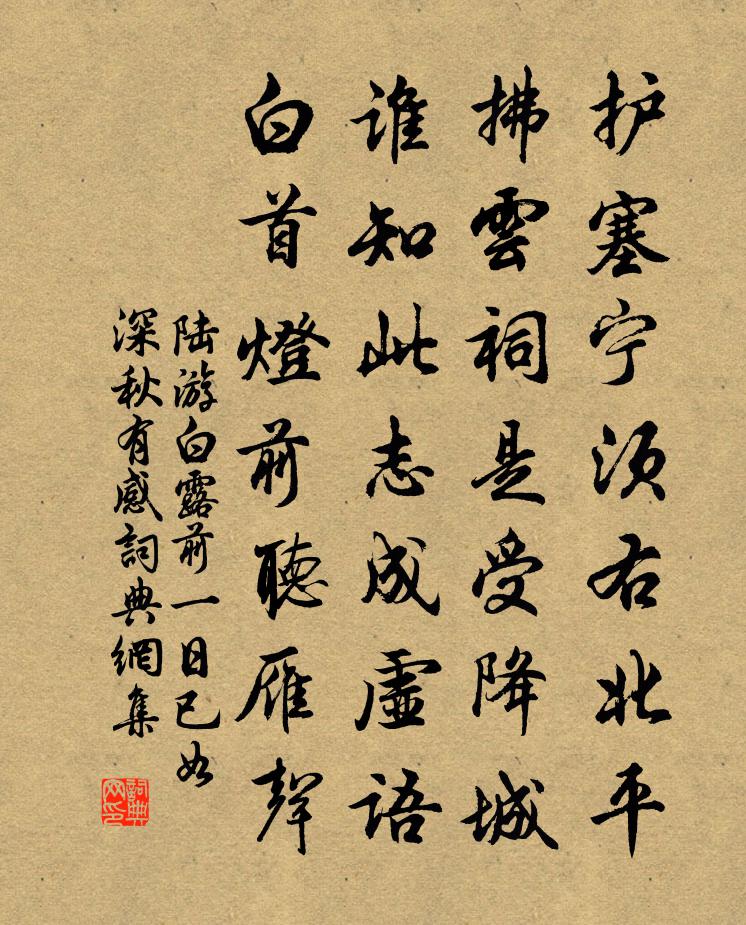 护塞宁须右北平
拂雲祠是受降城
谁知此志成虚语
白首燈前聴雁聲
陆游白露前一日已如
深秋有感詞典網集
詞典网印